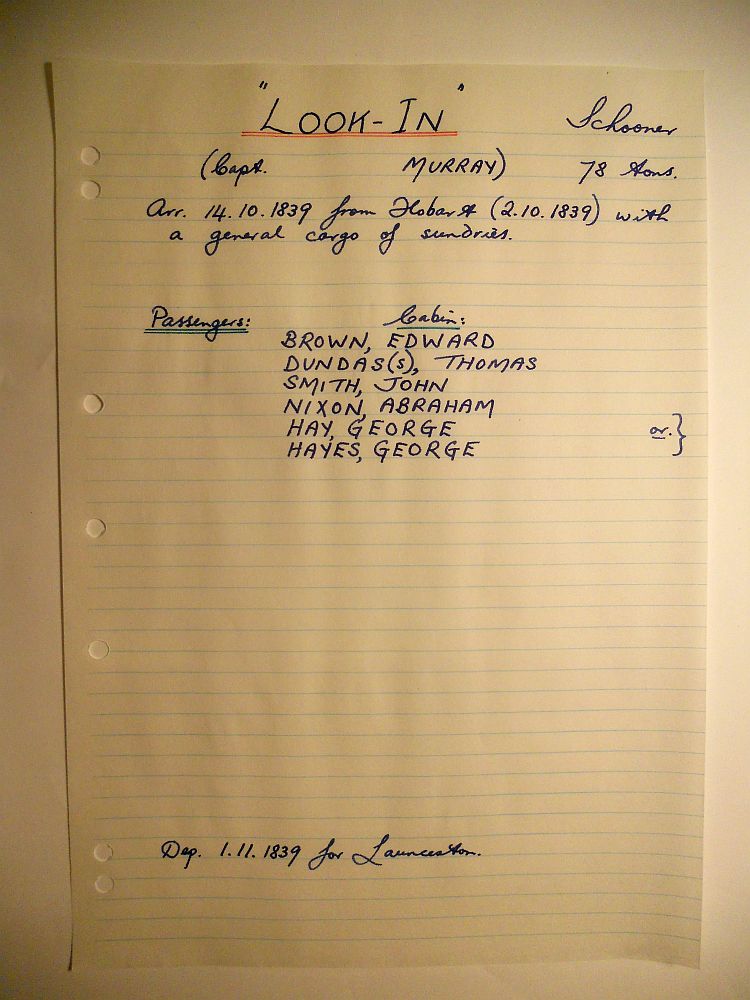 "LOOK-IN" Schooner
(Capt. MURRAY) 78 tons.
Arr. 14.10.1839 from Hobart (2.10.1839) with
a general cargo of sundries.
Passengers: Cabin:
BROWN, EDWARD
DUNDAS(S), THOMAS
SMITH, JOHN
NIXON, ABRAHAM
HAY, GEORGE or. }
HAYES, GEORGE
Dep. 1.11.1839 for Launceston.